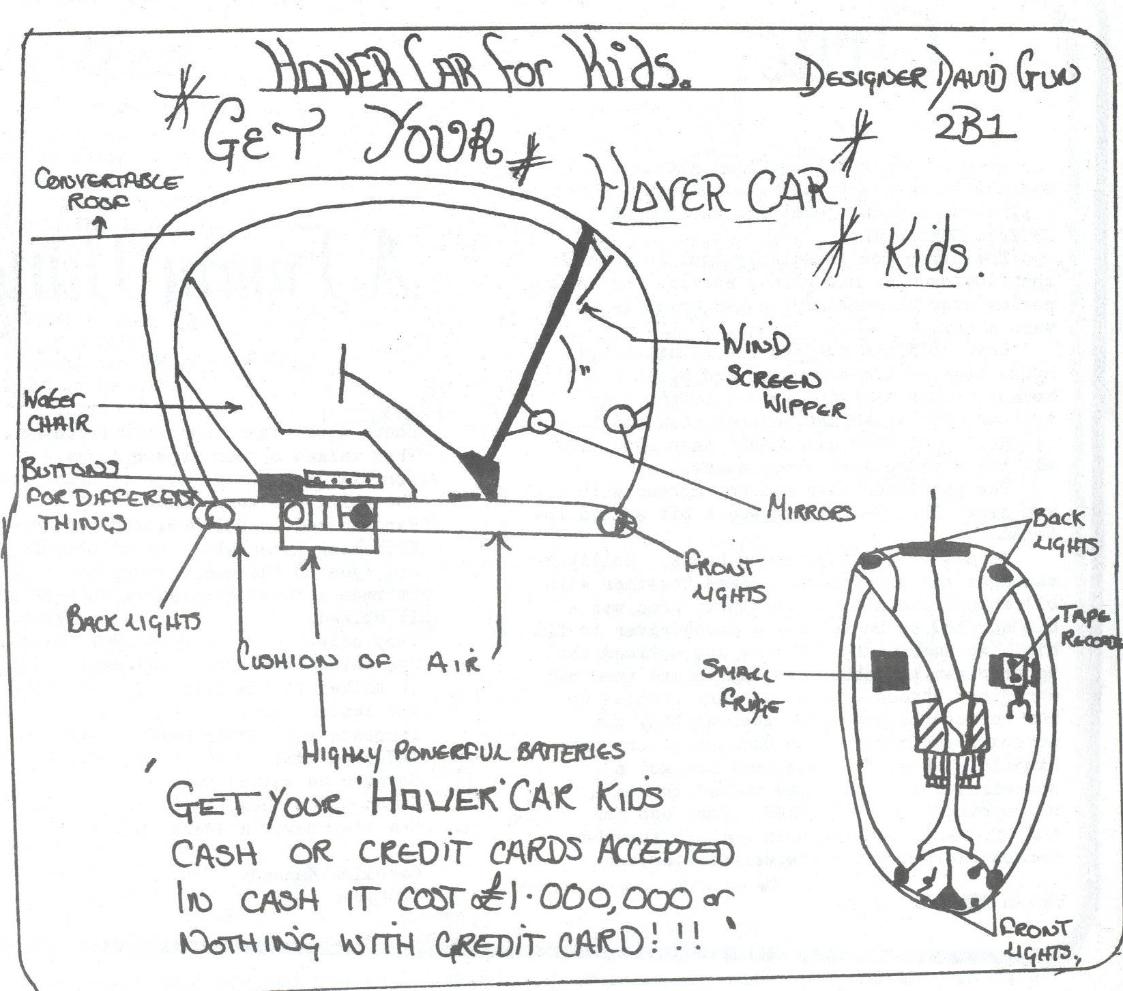 HOVER CAR for Kids.
DESIGNER DAVID GUN
2B1
GET YOUR
HOVER CAR
Kids.
CONVERTABLE
ROOF
WIND
SCREEN
WIPPER
Water
CHAIR
BUTTONS
FOR DIFFERENT
THINGS
MIRRORS
FRONT
LIGHTS
BACK LIGHTS
CUSHION OF AIR
HIGHLY POWERFUL BATTERIES
BACK
LIGHTS
TAPE
RECORDER
SMALL
FRIGE
FRONT
LIGHTS.
' GET YOUR 'HOVER' CAR KIDS
CASH OR CREDIT CARDS ACCEPTED
IN CASH IT COST £1.000,000 or
NOTHING WITH CREDIT CARD!!! "